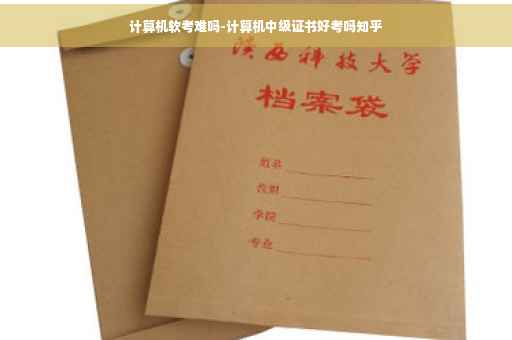 计算机软考难吗-计算机中级证书好考吗知乎
陕西科技大学
档案袋
学院
专业